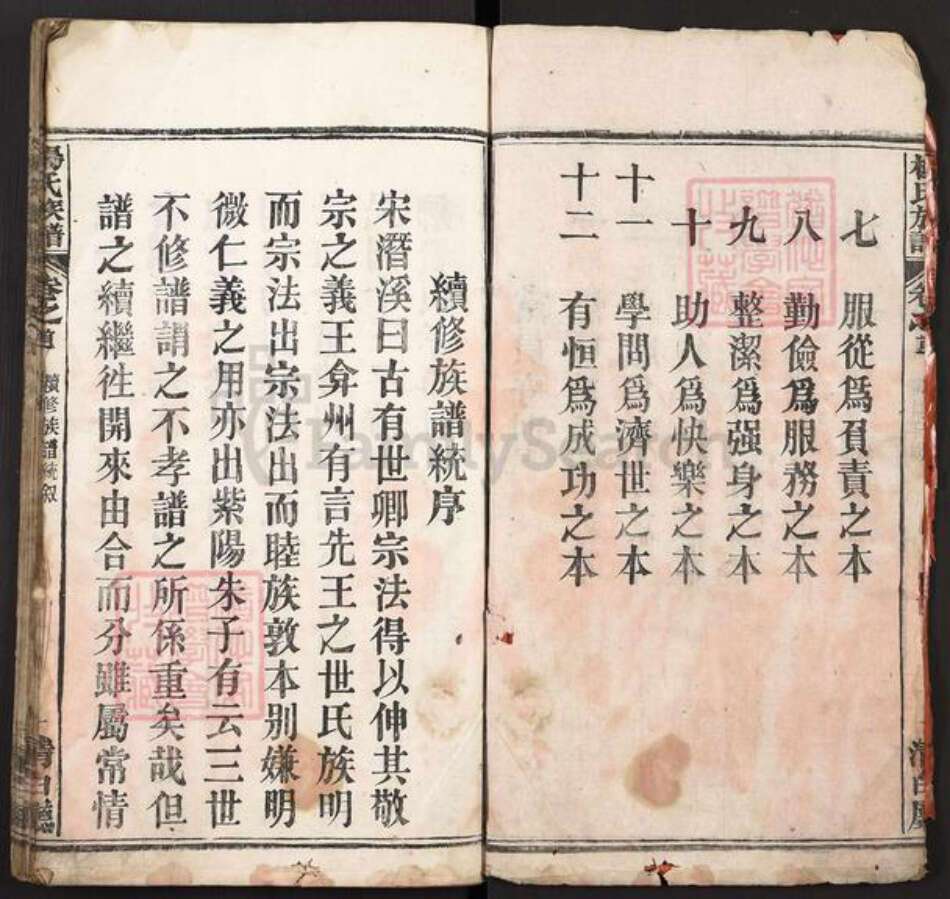 七 服從爲負責之本
八 勤儉爲服務之本
九 整潔爲强身之本
十 助人爲快樂之本
十一 學問爲濟世之本
十二 有恒爲成功之本
續修族譜統序
宋潛溪曰古有世卿宗法得以伸其敬
宗之義王弇州有言先王之世氏族明
而宗法出宗法出而睦族敦本别嫌明
微仁義之用亦出紫陽朱子有云三世
不修譜謂之不孝譜之所係重矣哉但
譜之續繼徃開來由合而分雖屬常情
楊氏族譜 卷之首 續修族譜統叙 清白廳
FamilySearch